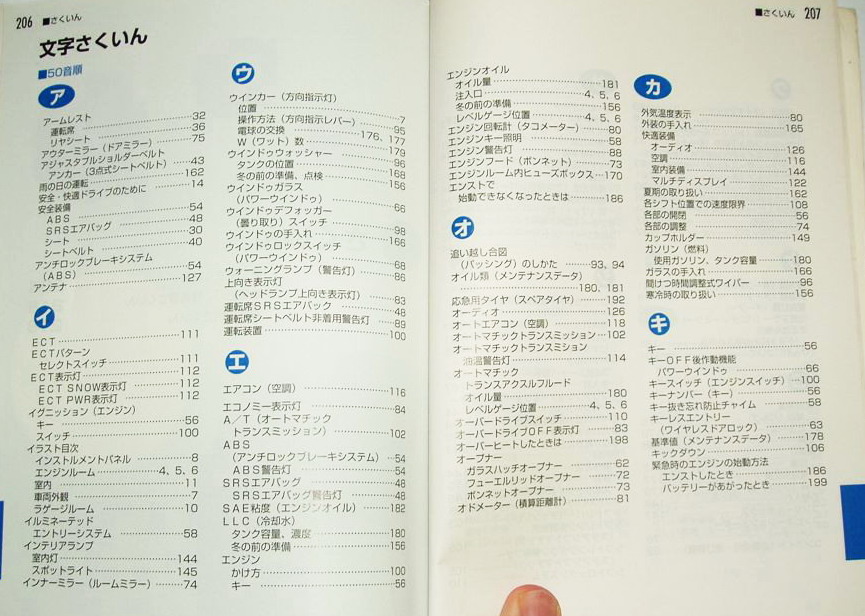 206 ■さくいん
文字さくいん
■50音順
ア
アームレスト
運転席 32
リヤシート 36
アウターミラー（ドアミラー） 75
アジャスタブルショルダーベルト
アンカー（3点式シートベルト） 43
雨の日の運転 162
安全・快適ドライブのために 14
安全装備
ABS 54
SRSエアバッグ 48
シート 30
シートベルト 40
アンチロックブレーキシステム
（ABS） 54
アンテナ 127
イ
ECT 111
ECTパターン
セレクトスイッチ 111
ECT表示灯 112
ECT SNOW表示灯 112
ECT PWR表示灯 112
イグニッション（エンジン）
キー 56
スイッチ 100
イラスト目次
インストルメントパネル 8
エンジンルーム 4、5、6
室内 11
車両外観 7
ラゲージルーム 10
イルミネーテッド
エントリーシステム 58
インテリアランプ
室内灯 144
スポットライト 145
インナーミラー（ルームミラー） 74
ウ
ウインカー（方向指示灯）
位置 7
操作方法（方向指示レバー） 95
電球の交換 176、177
W（ワット）数 179
ウインドゥウォッシャー
タンクの位置 96
冬の前の準備、点検 168
ウインドゥガラス 156
（パワーウインドゥ） 66
ウインドゥデフォッガー
（曇り取り）スイッチ 98
ウインドゥの手入れ 166
ウインドゥロックスイッチ
（パワーウインドゥ） 68
ウォーニングランプ（警告灯） 86
上向き表示灯
（ヘッドランプ上向き表示灯） 83
運転席SRSエアバック 48
運転席シートベルト非着用警告灯 89
運転装置 100
エ
エアコン（空調） 116
エコノミー表示灯 84
A／T（オートマチック
トランスミッション） 102
ABS
（アンチロックブレーキシステム） 54
ABS警告灯 54
SRSエアバッグ 48
SRSエアバッグ警告灯 48
SAE粘度（エンジンオイル） 182
LLC（冷却水）
タンク容量、濃度 180
冬の前の準備 156
エンジン
かけ方 100
キー 56
■さくいん 207
エンジンオイル
オイル量 181
注入口 4、5、6
冬の前の準備 156
レベルゲージ位置 4、5、6
エンジン回転計（タコメーター） 80
エンジンキー照明 58
エンジン警告灯 88
エンジンフード（ボンネット） 73
エンジンルーム内ヒューズボックス 170
エンストで
始動できなくなったときは 186
オ
追い越し合図
（パッシング）のしかた 93、94
オイル類（メンテナンスデータ）
180、181
応急用タイヤ（スペアタイヤ） 192
オーディオ 126
オートエアコン（空調） 118
オートマチックトランスミッション 102
オートマチックトランスミション
油温警告灯 114
オートマチック
トランスアクスルフルード
オイル量 180
レベルゲージ位置 4、5、6
オーバードライブスイッチ 110
オーバードライブOFF表示灯 83
オーバーヒートしたときは 198
オープナー
ガラスハッチオープナー 62
フューエルリッドオープナー 72
ボンネットオープナー 73
オドメーター（積算距離計） 81
カ
外気温度表示 80
外装の手入れ 165
快適装備
オーディオ 126
空調 116
室内装備 144
マルチディスプレイ 122
夏期の取り扱い 162
各シフト位置での速度限界 108
各部の開閉 56
各部の調整 74
カップホルダー 149
ガソリン（燃料）
使用ガソリン、タンク容量 180
ガラスの手入れ 166
間けつ時間調整式ワイパー 96
寒冷時の取り扱い 156
キ
キー 56
キーOFF後作動機能
パワーウインドゥ 66
キースイッチ（エンジンスイッチ） 100
キーナンバー（キー） 56
キー抜き忘れ防止チャイム 58
キーレスエントリー
（ワイヤレスドアロック） 63
基準値（メンテナンスデータ） 178
キックダウン 106
緊急時のエンジンの始動方法
エンストしたとき 186
バッテリーがあがったとき 199